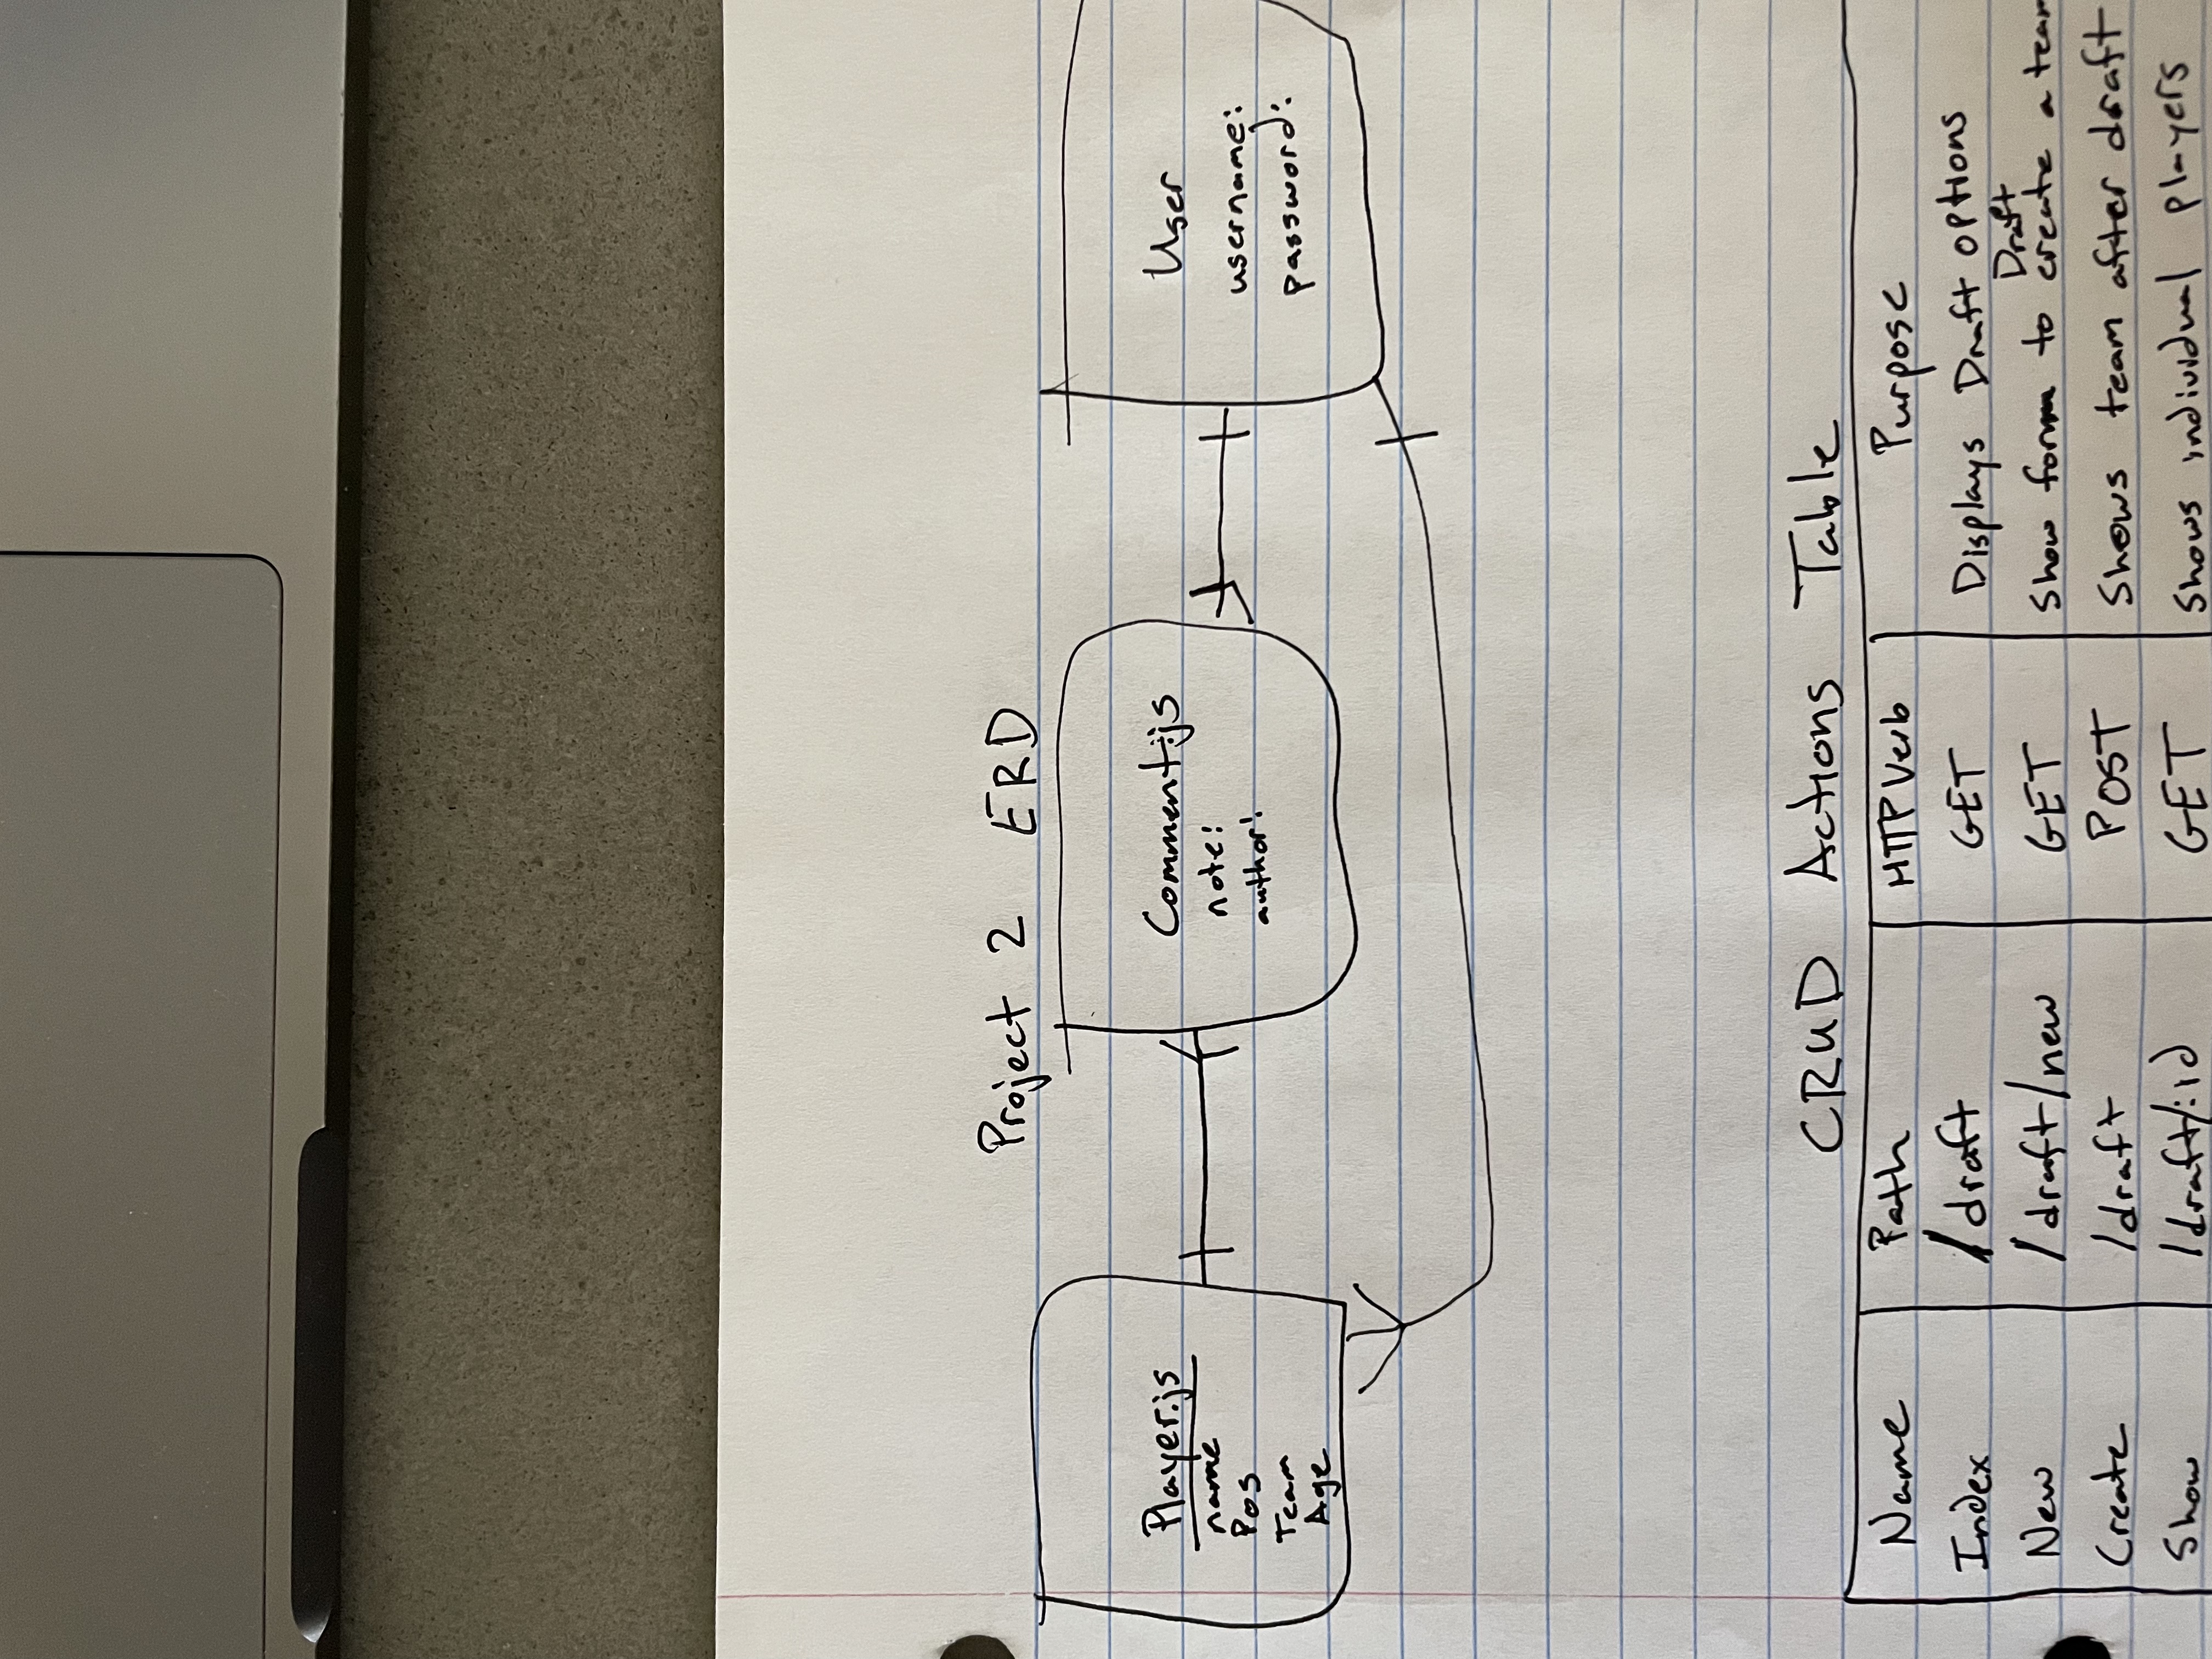 Project 2 ERD
Player.js
name
Pos
Team
Age
Comment.js
note:
author:
User
username:
password:
CRUD Actions Table
Name Path HTTP Verb Purpose
Index /draft GET Displays Draft options
Draft
New /draft/new GET Show form to create a team
Create /draft POST Shows team after draft
Show /draft/:id GET Shows individual players